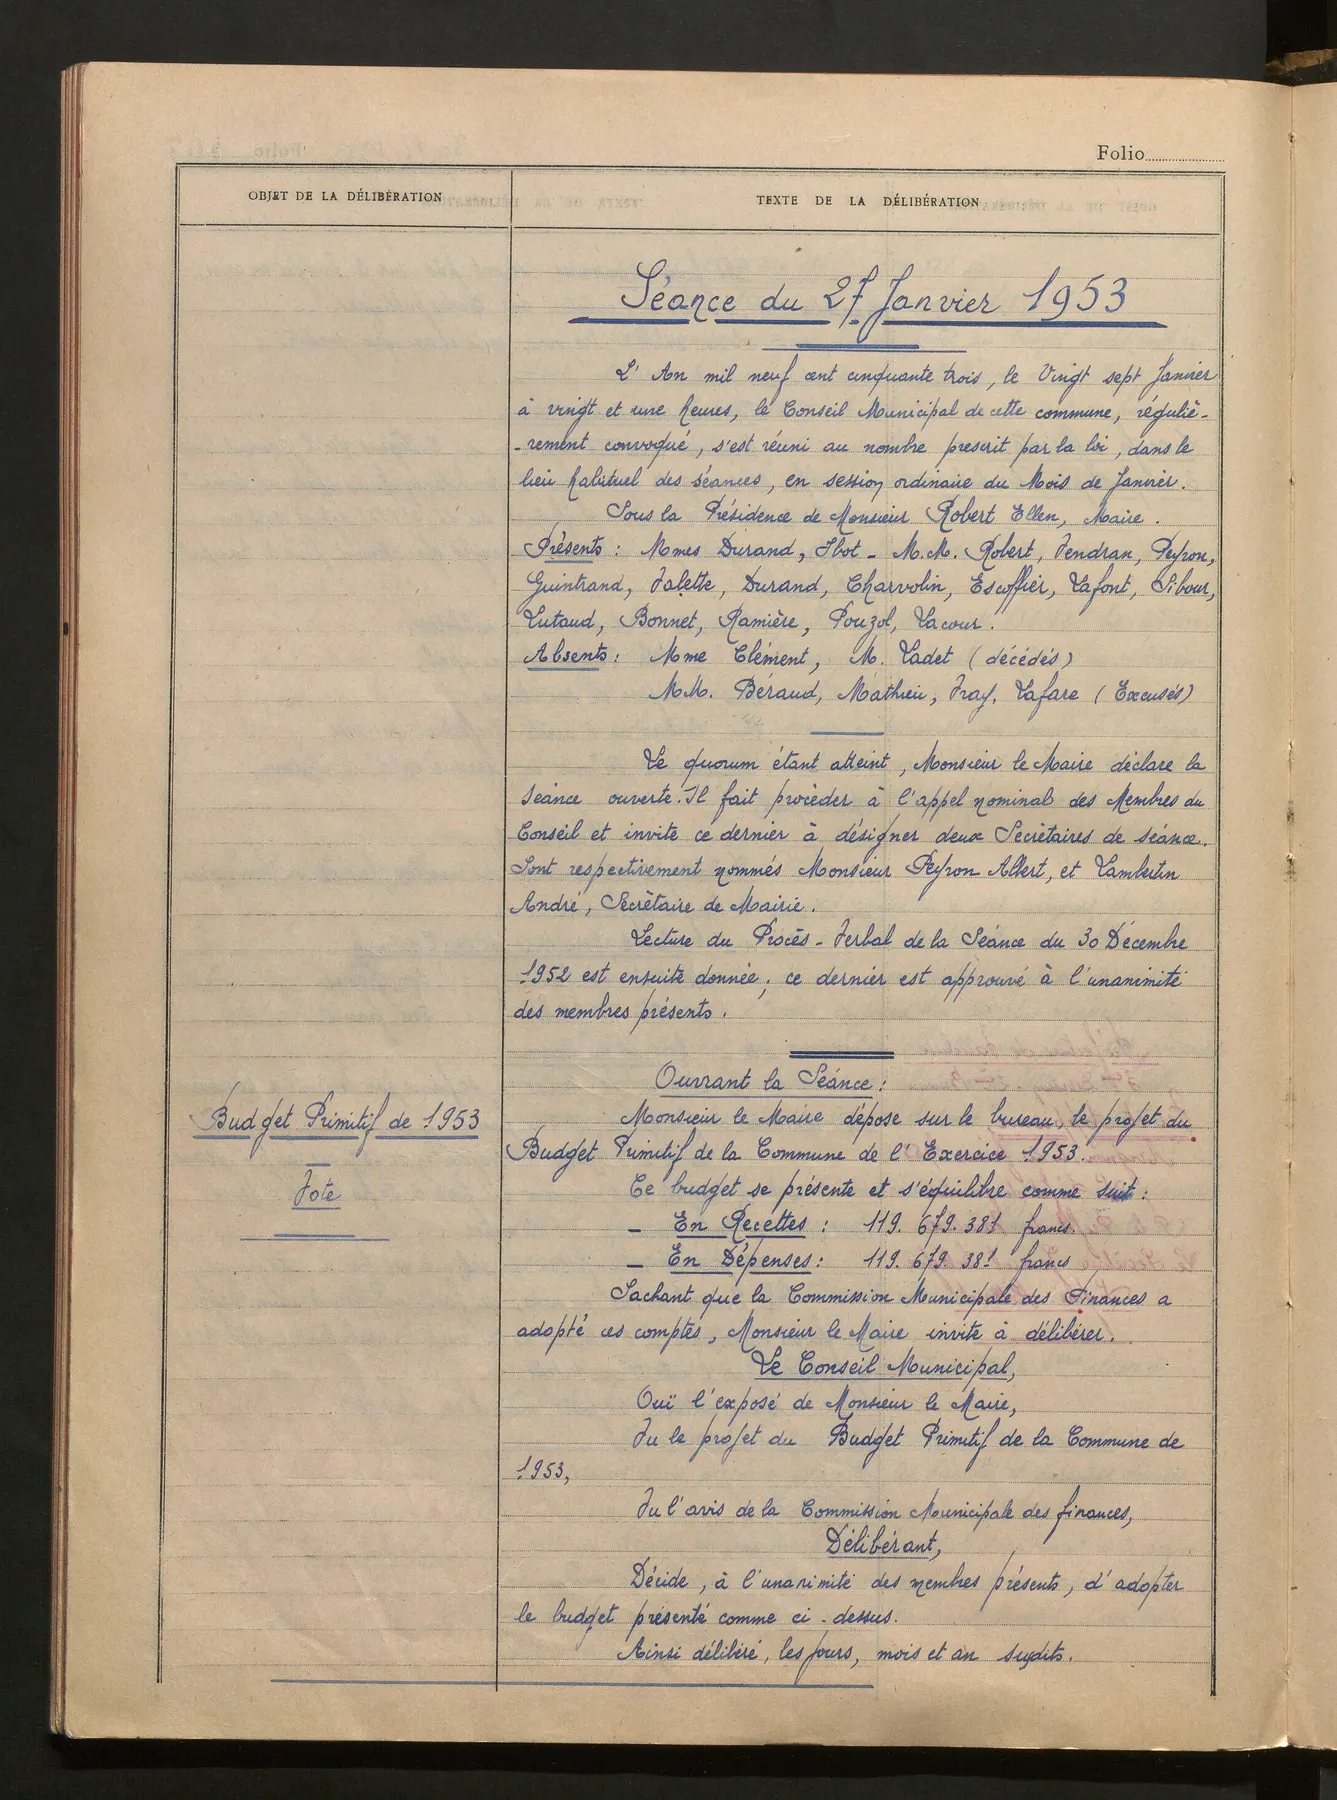 Folio
OBJET DE LA DÉLIBÉRATION
TEXTE DE LA DÉLIBÉRATION
Séance du 27 Janvier 1953
L'An mil neuf cent cinquante trois, le Vingt sept Janvier
à vingt et une heures, le Conseil Municipal de cette commune, réguliè-
-rement convoqué, s'est réuni au nombre prescrit par la loi, dans le
lieu habituel des séances, en session ordinaire du Mois de Janvier.
Sous la Présidence de Monsieur Robert Ellen, Maire.
Présents : Mmes Durand, Ibot - M.M. Robert, Vendran, Peyron,
Guintrand, Valette, Durand, Charvolin, Escoffier, Lafont, Sibour,
Lutaud, Bonnet, Ramière, Pouzol, Lacour.
Absents : Mme Clément, M. Ladet (décédés)
M.M. Béraud, Mathieu, Fray, Lafare (Excusés)
Le quorum étant atteint, Monsieur le Maire déclare la
séance ouverte. Il fait procéder à l'appel nominal des Membres du
Conseil et invite ce dernier à désigner deux Secrétaires de séance.
Sont respectivement nommés Monsieur Peyron Albert, et Lambertin
André, Secrétaire de Mairie.
Lecture du Procès-Verbal de la Séance du 30 Décembre
1952 est ensuite donnée ; ce dernier est approuvé à l'unanimité
des membres présents.
Ouvrant la Séance :
Budget Primitif de 1953
Vote
Monsieur le Maire dépose sur le bureau le projet du
Budget Primitif de la Commune de l'Exercice 1953.
Ce budget se présente et s'équilibre comme suit :
- En Recettes : 119.679.381 francs.
- En Dépenses : 119.679.381 francs
Sachant que la Commission Municipale des Finances a
adopté ces comptes, Monsieur le Maire invite à délibérer.
Le Conseil Municipal,
Ouï l'exposé de Monsieur le Maire,
Vu le projet du Budget Primitif de la Commune de
1953,
Vu l'avis de la Commission Municipale des finances,
Délibérant,
Décide, à l'unanimité des membres présents, d'adopter
le budget présenté comme ci-dessus.
Ainsi délibéré, les jours, mois et an susdits.